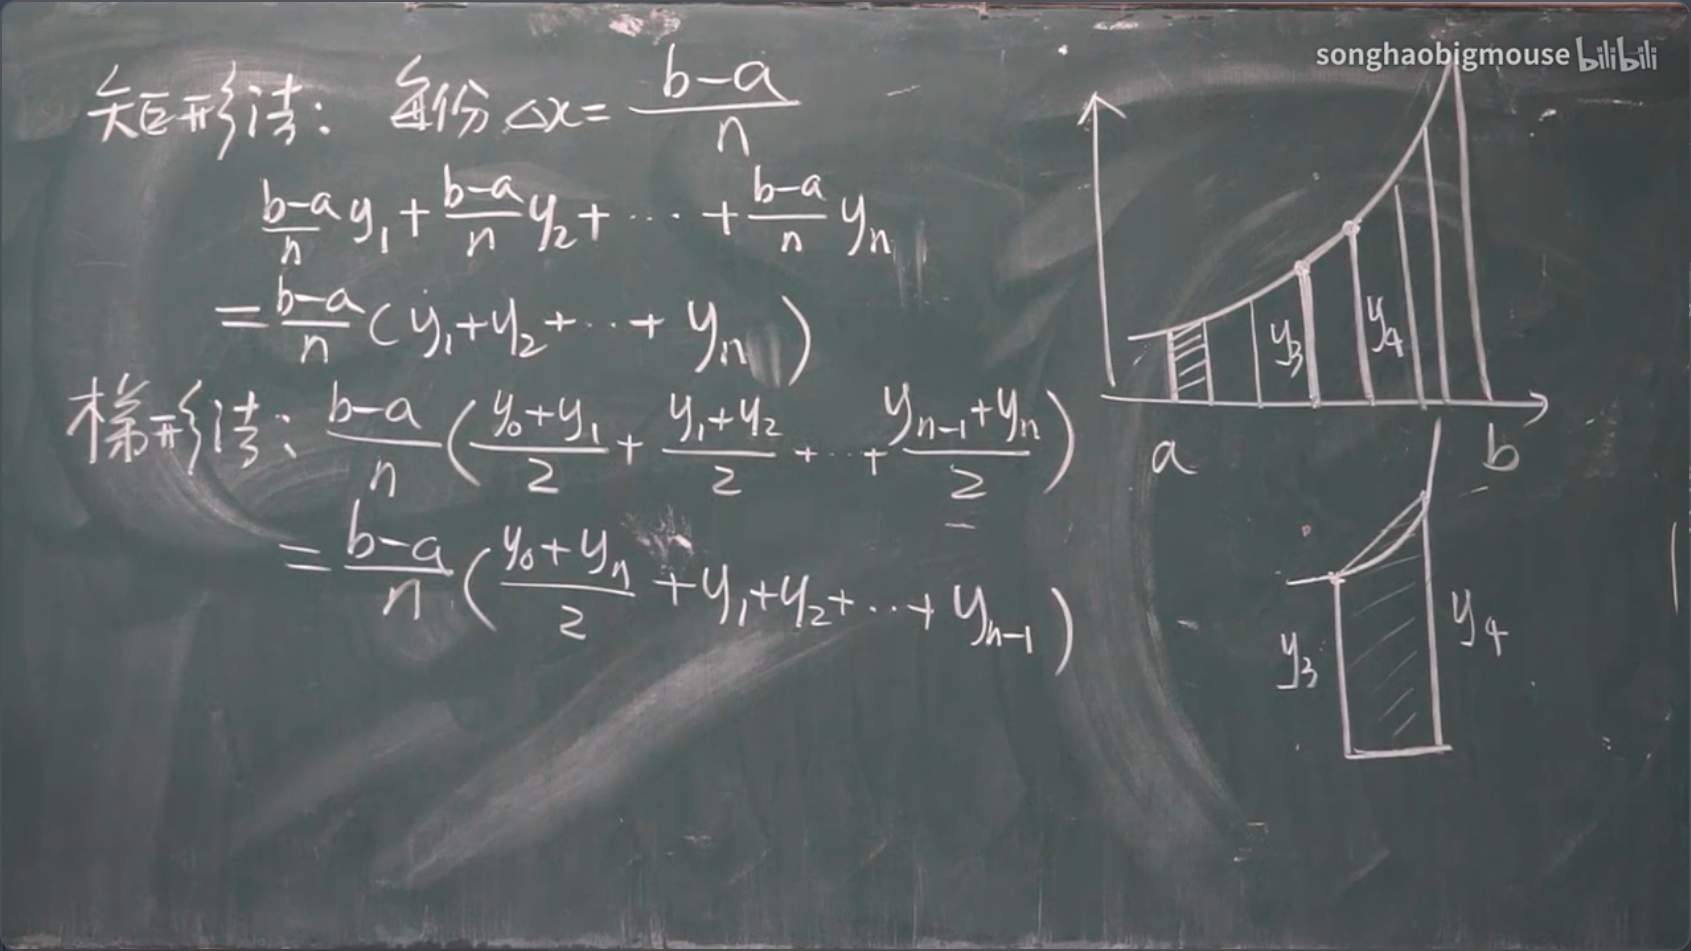 songhaobigmouse bilibili
矩形法: 每份 △x= \frac{b-a}{n}
\frac{b-a}{n} y_1 + \frac{b-a}{n} y_2 + ⋯ + \frac{b-a}{n} y_n
= \frac{b-a}{n} ( y_1 + y_2 + ⋯ + y_n )
梯形法: \frac{b-a}{n} ( \frac{y_0+y_1}{2} + \frac{y_1+y_2}{2} + ⋯ + \frac{y_{n-1}+y_n}{2} )
= \frac{b-a}{n} ( \frac{y_0+y_n}{2} + y_1 + y_2 + ⋯ + y_{n-1} )
y_3 y_4
a b
y_3 y_4